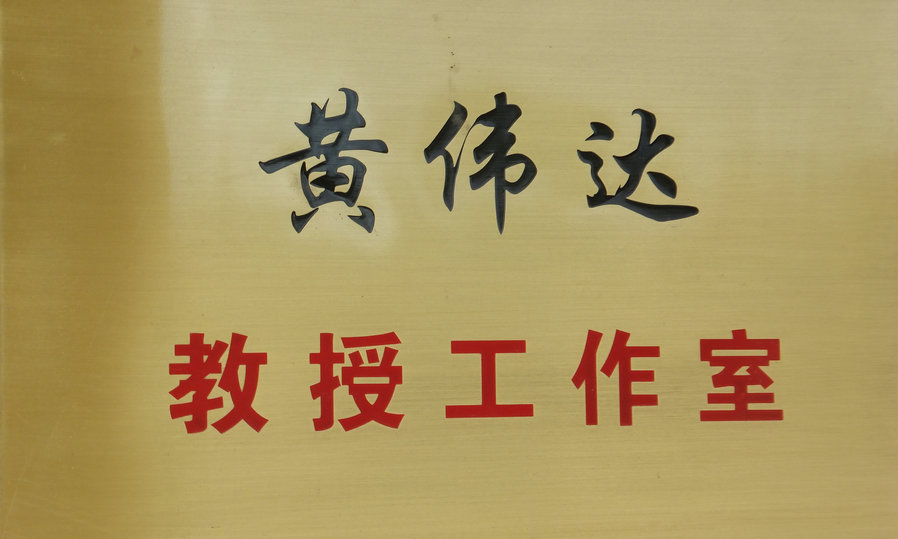 黄伟达
教授工作室